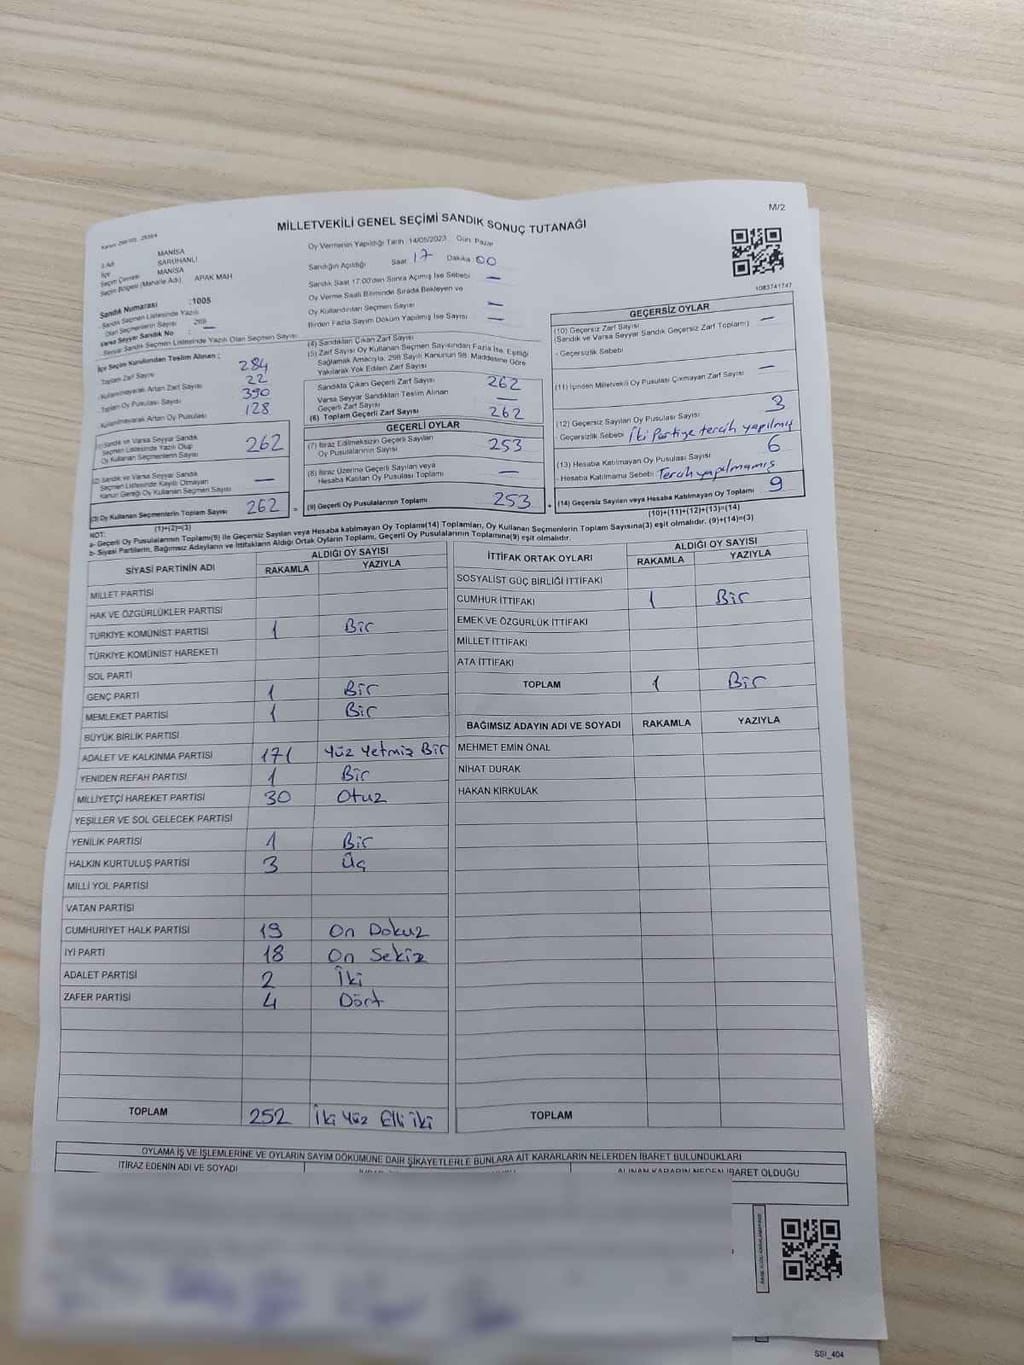 M/2
MİLLETVEKİLİ GENEL SEÇİMİ SANDIK SONUÇ TUTANAĞI
İl Adı MANİSA
İlçe SARUHANLI
Seçim Çevresi MANİSA
Seçim Bölgesi (Mahalle Adı) APAK MAH
Oy Vermenin Yapıldığı Tarih 14/05/2023 Gün: Pazar
Sandığın Açıldığı Saat 17 Dakika 00
Sandık Saat 17:00'den Sonra Açılmış İse Sebebi —
Oy Verme Saati Bitiminde Sırada Bekleyen ve
Oy Kullandırılan Seçmen Sayısı —
Birden Fazla Sayım Döküm Yapılmış İse Sayısı —
1083741747
Sandık Numarası :1005
Sandık Seçmen Listesinde Yazılı
Olan Seçmenlerin Sayısı 269
Varsa Seyyar Sandık No : —
Seyyar Sandık Seçmen Listesinde Yazılı Olan Seçmen Sayısı
İlçe Seçim Kurulundan Teslim Alınan :
Toplam Zarf Sayısı 284
Kullanılmayarak Artan Zarf Sayısı 22
Toplam Oy Pusulası Sayısı 390
Kullanılmayarak Artan Oy Pusulası 128
(1) Sandık ve Varsa Seyyar Sandık
Seçmen Listesinde Yazılı Olup
Oy Kullanan Seçmenlerin Sayısı 262
(2) Sandık ve Varsa Seyyar Sandık
Seçmen Listesinde Kayıtlı Olmayan
Kanun Gereği Oy Kullanan Seçmen Sayısı —
(3) Oy Kullanan Seçmenlerin Toplam Sayısı 262
(1)+(2)=(3)
(4) Sandıktan Çıkan Zarf Sayısı
(5) Zarf Sayısı Oy Kullanan Seçmen Sayısından Fazla İse, Eşitliği
Sağlamak Amacıyla, 298 Sayılı Kanunun 98. Maddesine Göre
Yakılarak Yok Edilen Zarf Sayısı
Sandıkta Çıkan Geçerli Zarf Sayısı 262
Varsa Seyyar Sandıktan Teslim Alınan
Geçerli Zarf Sayısı —
(6) Toplam Geçerli Zarf Sayısı 262
GEÇERLİ OYLAR
(7) İtiraz Edilmeksizin Geçerli Sayılan
Oy Pusulalarının Sayısı 253
(8) İtiraz Üzerine Geçerli Sayılan veya
Hesaba Katılan Oy Pusulası Toplamı —
(9) Geçerli Oy Pusulalarının Toplamı 253
GEÇERSİZ OYLAR
(10) Geçersiz Zarf Sayısı
(Sandık ve Varsa Seyyar Sandık Geçersiz Zarf Toplamı) —
- Geçersizlik Sebebi
(11) İçinden Milletvekili Oy Pusulası Çıkmayan Zarf Sayısı —
(12) Geçersiz Sayılan Oy Pusulası Sayısı 3
Geçersizlik Sebebi İki Partiye tercih yapılmış
(13) Hesaba Katılmayan Oy Pusulası Sayısı 6
- Hesaba Katılmama Sebebi Tercih yapılmamış
(14) Geçersiz Sayılan veya Hesaba Katılmayan Oy Toplamı 9
(10)+(11)+(12)+(13)=(14)
NOT:
a- Geçerli Oy Pusulalarının Toplamı(9) ile Geçersiz Sayılan veya Hesaba katılmayan Oy Toplamı(14) Toplamları, Oy Kullanan Seçmenlerin Toplam Sayısına(3) eşit olmalıdır. (9)+(14)=(3)
b- Siyasi Partilerin, Bağımsız Adayların ve İttifakların Aldığı Ortak Oyların Toplamı, Geçerli Oy Pusulalarının Toplamına(9) eşit olmalıdır.
SİYASİ PARTİNİN ADI ALDIĞI OY SAYISI
RAKAMLA YAZIYLA
MİLLET PARTİSİ
HAK VE ÖZGÜRLÜKLER PARTİSİ
TÜRKİYE KOMÜNİST PARTİSİ 1 Bir
TÜRKİYE KOMÜNİST HAREKETİ
SOL PARTİ
GENÇ PARTİ 1 Bir
MEMLEKET PARTİSİ 1 Bir
BÜYÜK BİRLİK PARTİSİ
ADALET VE KALKINMA PARTİSİ 171 Yüz Yetmiş Bir
YENİDEN REFAH PARTİSİ 1 Bir
MİLLİYETÇİ HAREKET PARTİSİ 30 Otuz
YEŞİLLER VE SOL GELECEK PARTİSİ
YENİLİK PARTİSİ 1 Bir
HALKIN KURTULUŞ PARTİSİ 3 Üç
MİLLİ YOL PARTİSİ
VATAN PARTİSİ
CUMHURİYET HALK PARTİSİ 19 On Dokuz
İYİ PARTİ 18 On Sekiz
ADALET PARTİSİ 2 İki
ZAFER PARTİSİ 4 Dört
TOPLAM 252 İki Yüz Elli iki
İTTİFAK ORTAK OYLARI ALDIĞI OY SAYISI
RAKAMLA YAZIYLA
SOSYALİST GÜÇ BİRLİĞİ İTTİFAKI
CUMHUR İTTİFAKI 1 Bir
EMEK VE ÖZGÜRLÜK İTTİFAKI
MİLLET İTTİFAKI
ATA İTTİFAKI
TOPLAM 1 Bir
BAĞIMSIZ ADAYIN ADI VE SOYADI RAKAMLA YAZIYLA
MEHMET EMİN ÖNAL
NİHAT DURAK
HAKAN KIRKULAK
TOPLAM
OYLAMA İŞ VE İŞLEMLERİNE VE OYLARIN SAYIM DÖKÜMÜNE DAİR ŞİKAYETLERLE BUNLARA AİT KARARLARIN NELERDEN İBARET BULUNDUKLARI
İTİRAZ EDENİN ADI VE SOYADI
ALINAN KARARIN NEDEN İBARET OLDUĞU
SSI_404